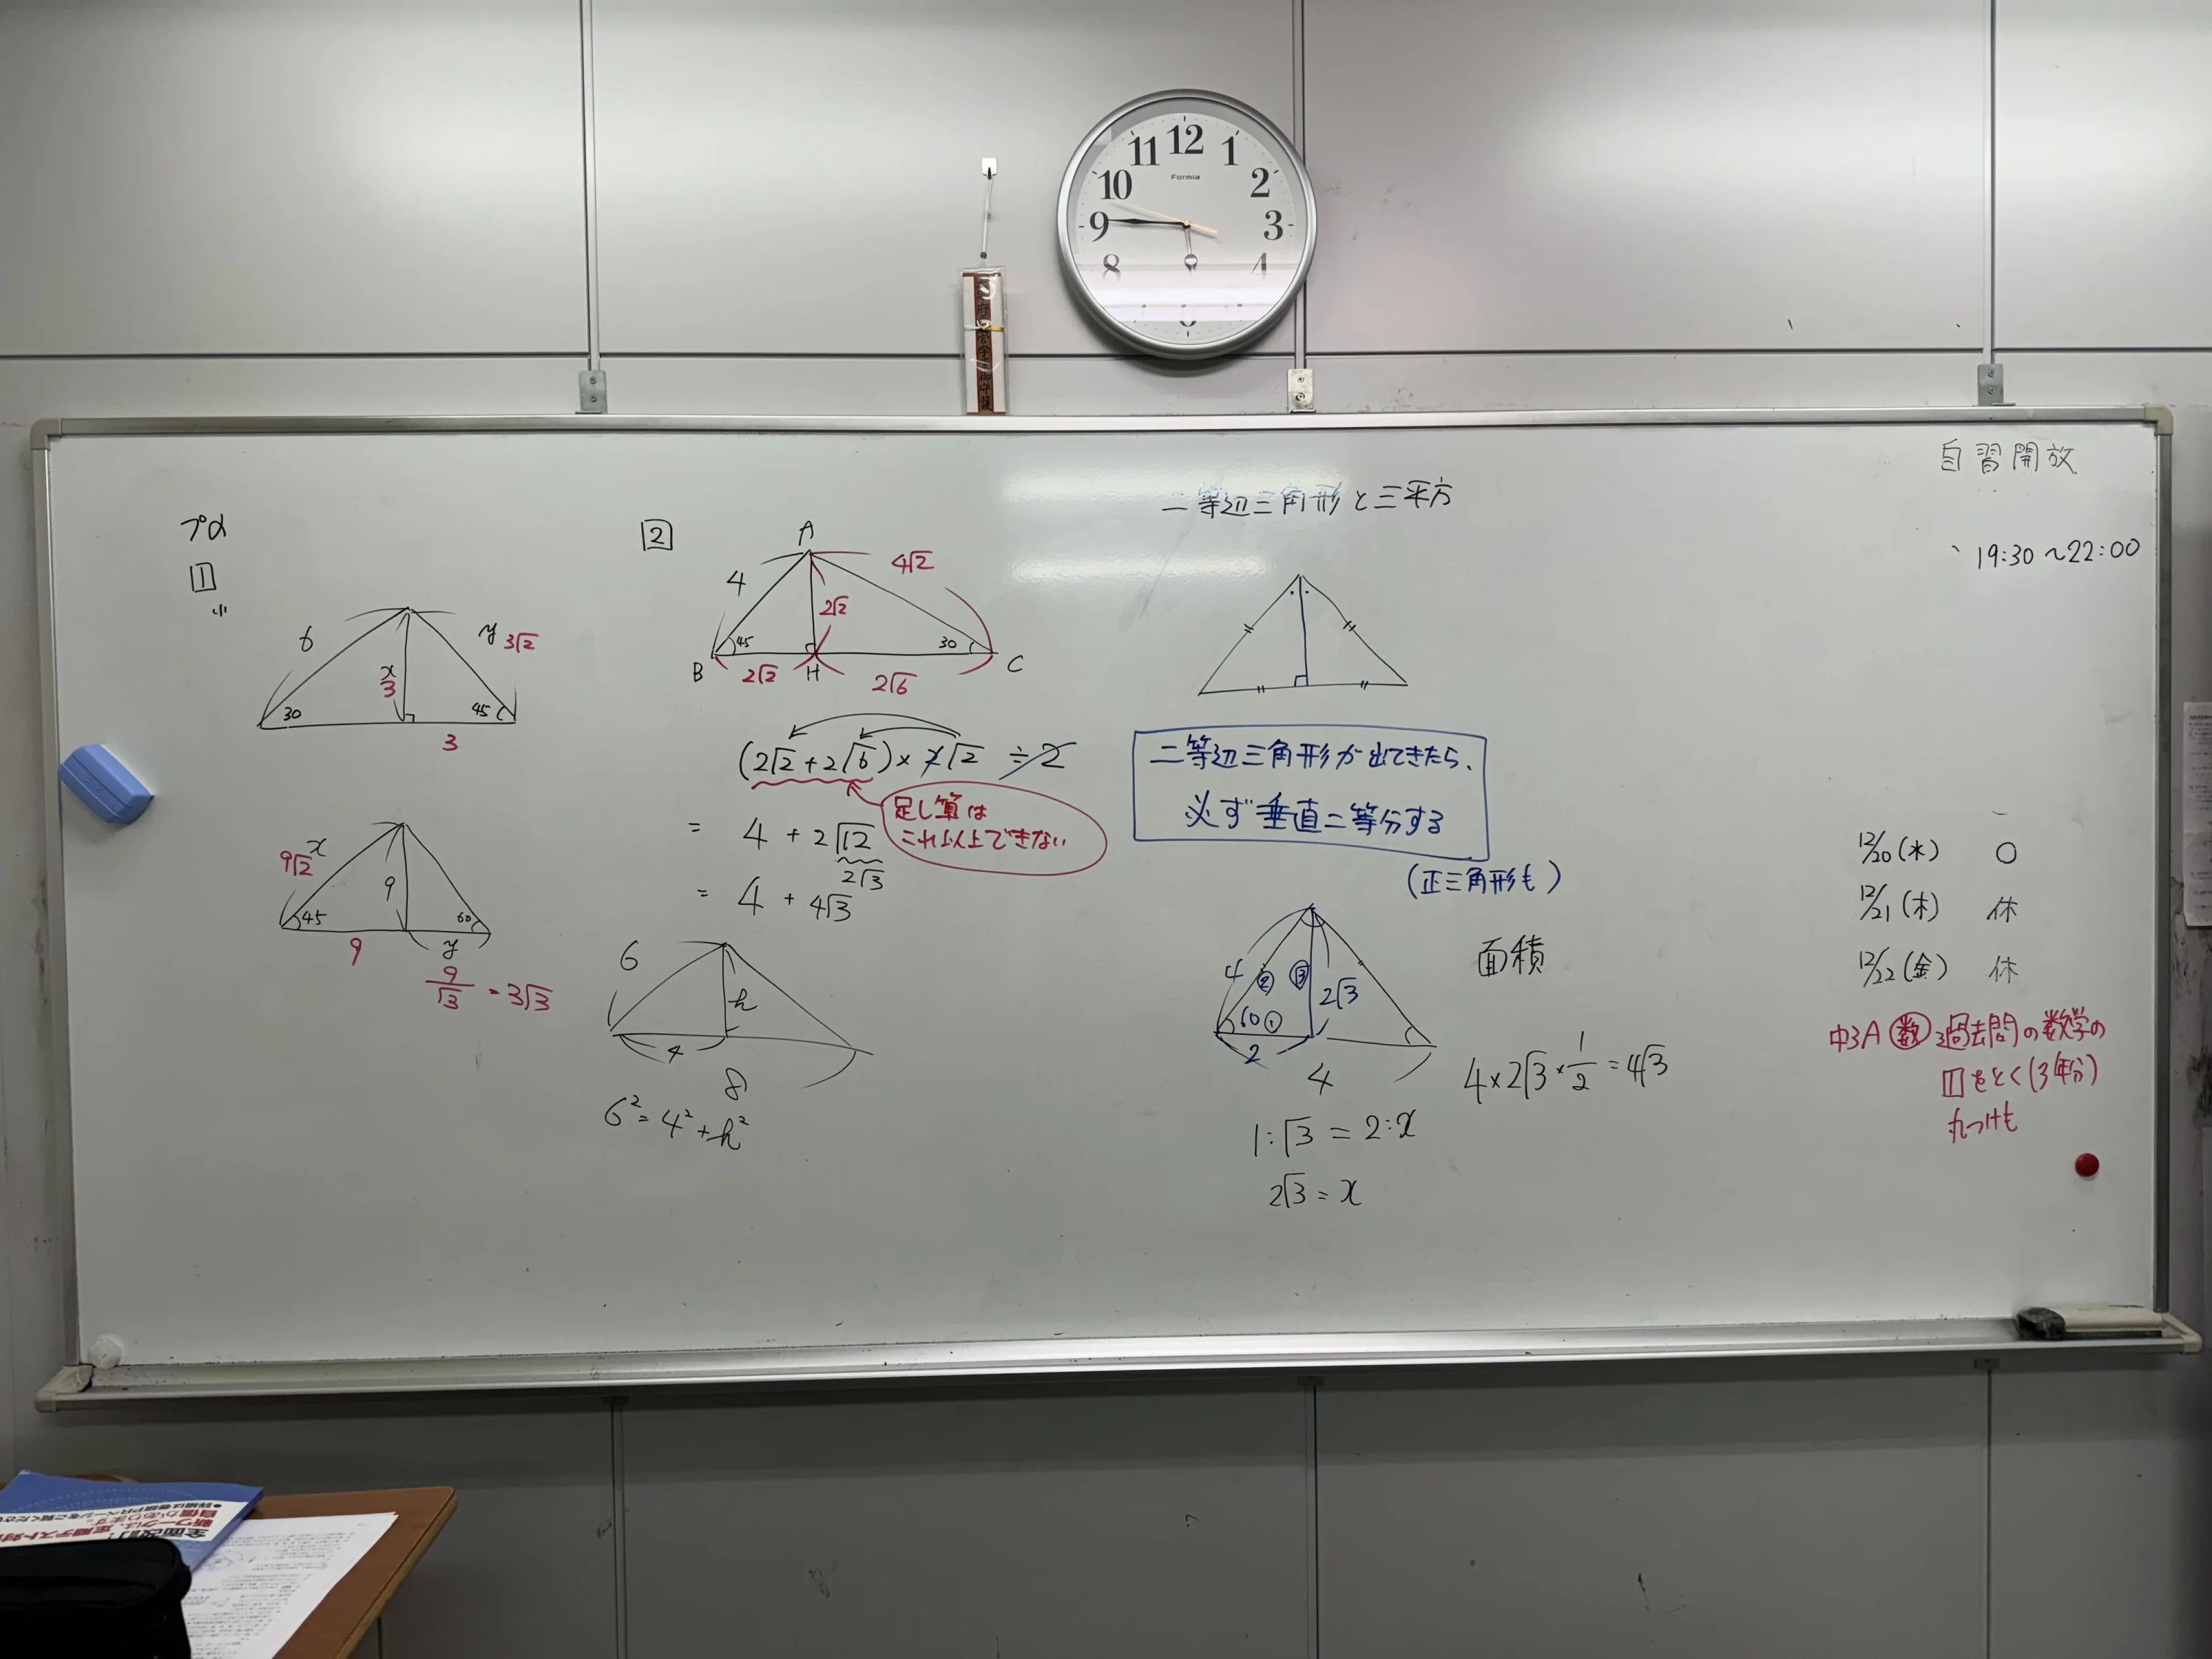 12
11
1
10
2
9
3
8
4
6
Formia
自習開放
19:30〜22:00
プリ
1
6
x
3
y
3√2
30
45
3
9√2
x
9
45
60
9
y
9/√3 = 3√3
2
A
4
4√2
2√2
45
30
B
H
C
2√2
2√6
(2√2+2√6)×2√2÷2
足し算は
これ以上できない
= 4 + 2√12
2√3
= 4 + 4√3
6
h
4
8
6²=4²+h²
二等辺三角形と三平方
二等辺三角形が出てきたら、
必ず垂直二等分する
(正三角形も)
4
②
③
2√3
60
①
2
4
面積
4×2√3×1/2=4√3
1:√3=2:x
2√3=x
12/20(水) ○
12/21(木) 休
12/22(金) 休
中3A 数 過去問の数学の
1をとく(3年分)
丸つけも